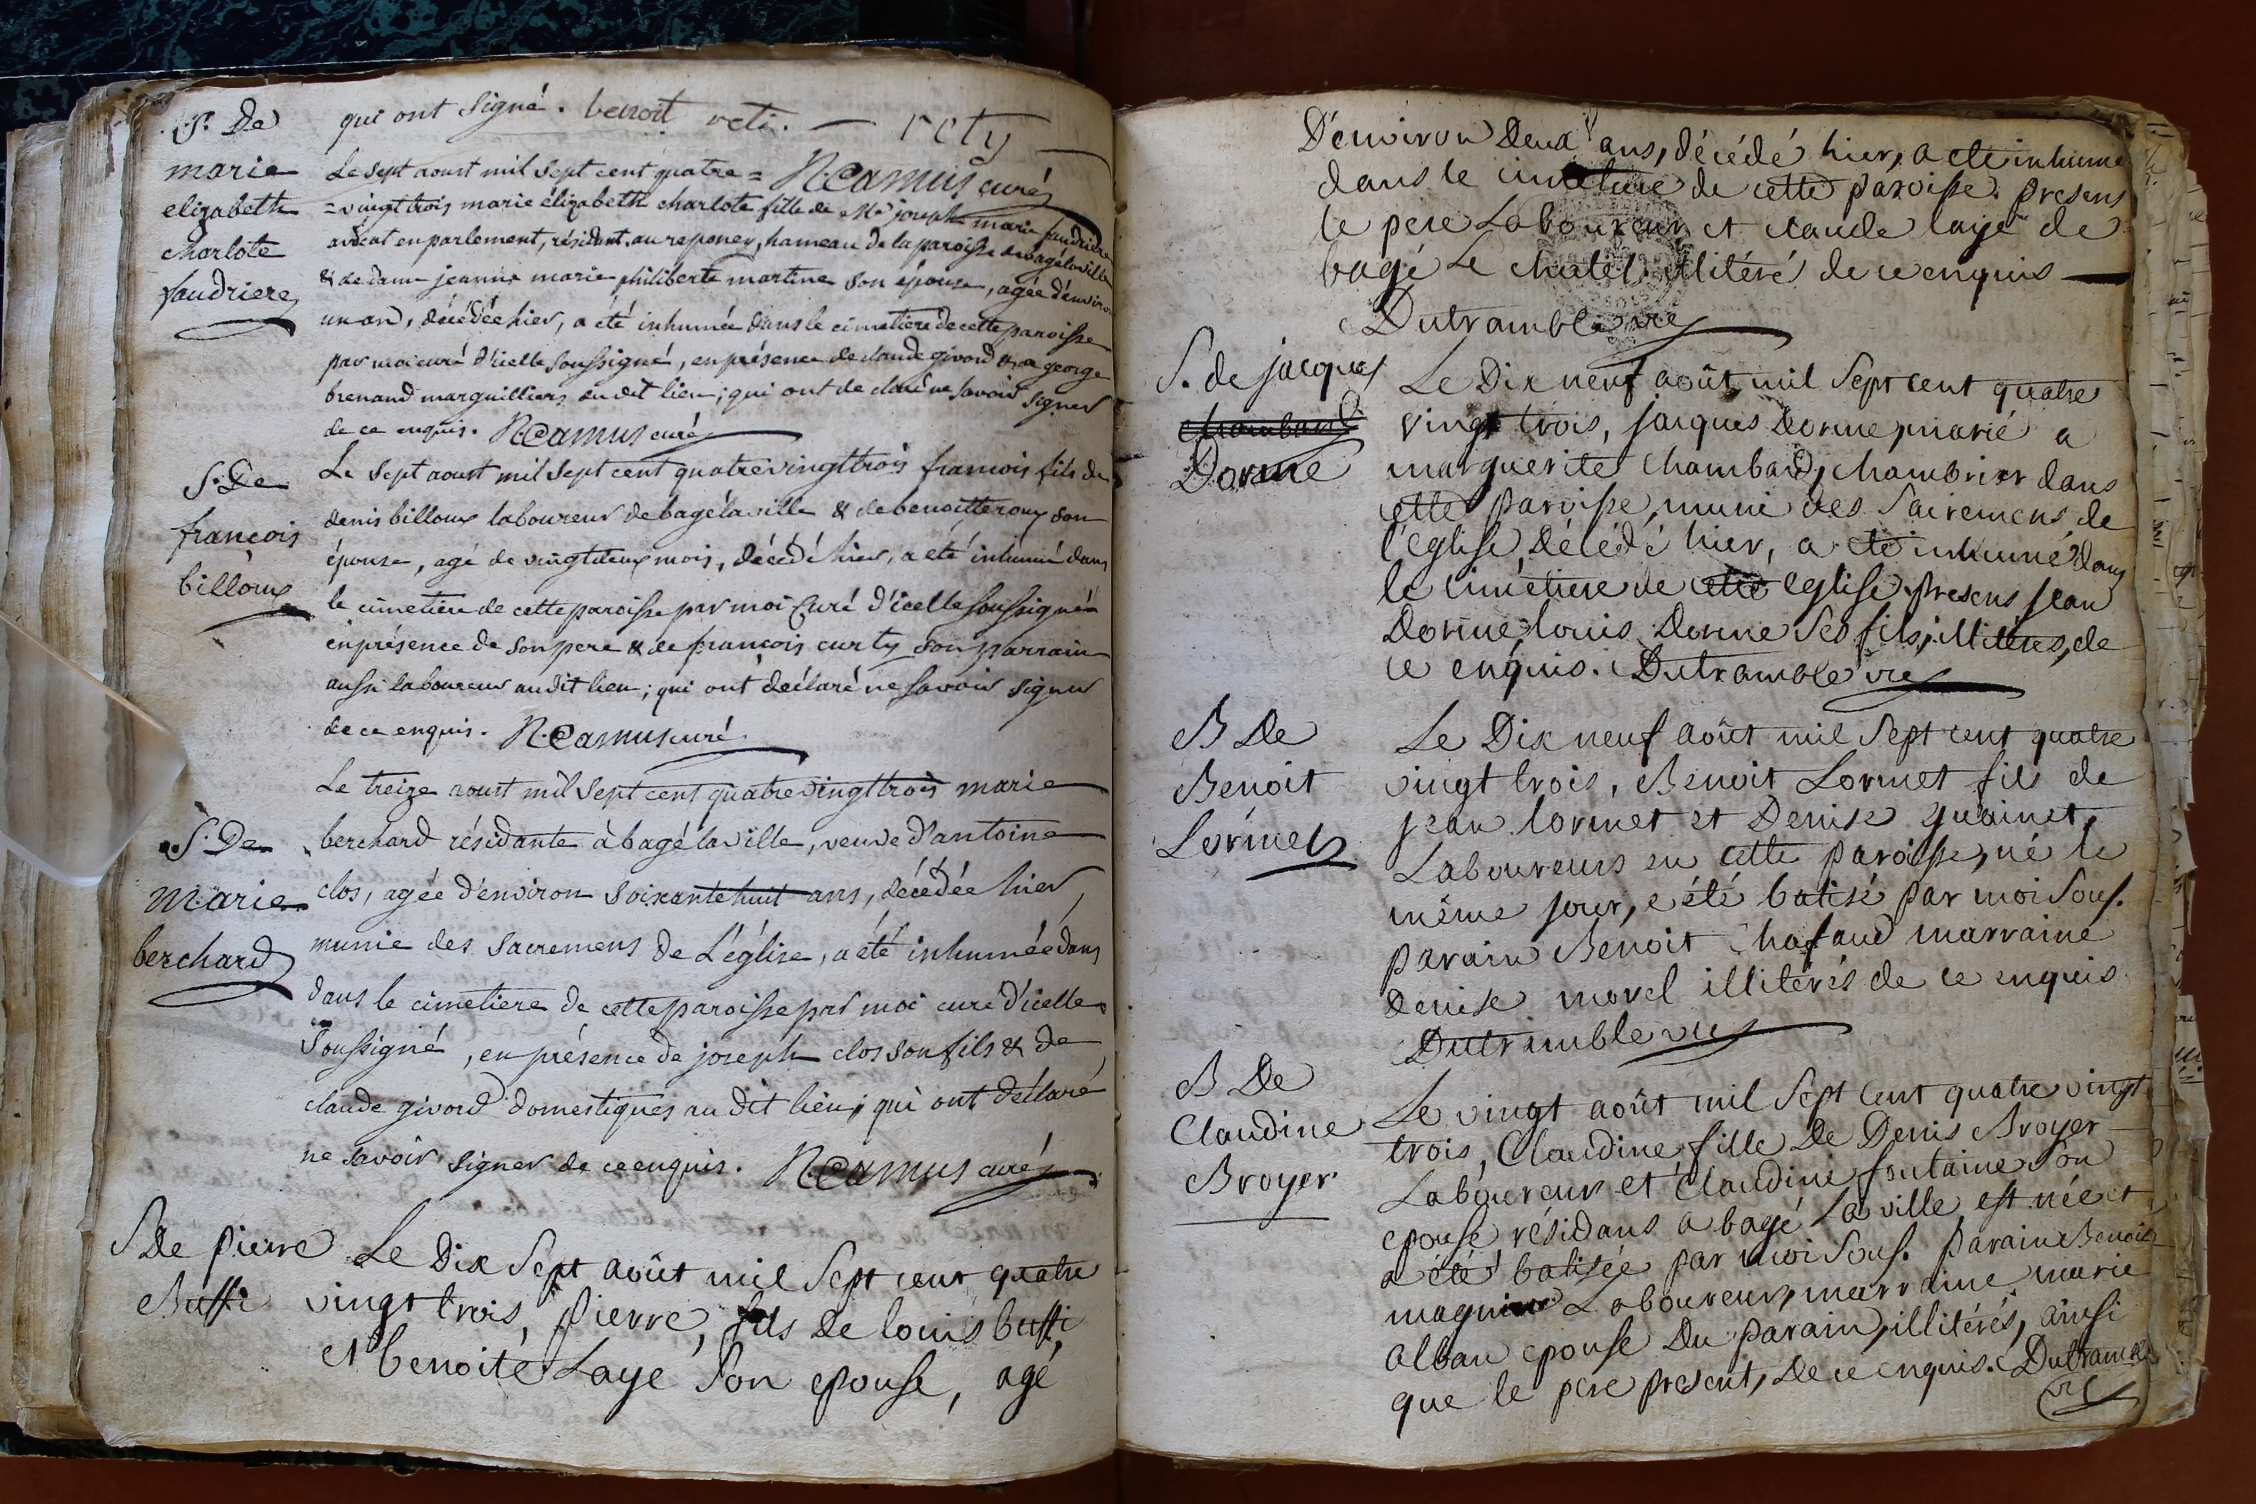 qui ont signé. benoit reti. — rety
S. De
marie
elizabeth
charlote
faudriere
Le sept aoust mil sept cent quatre = N. Camus curé
= vingt trois marie élizabeth charlote fille de Me joseph marie faudriere
avocat en parlement, résidant au reponey, hameau de la paroisse de bagé la ville
& de dame jeanne marie philiberte martine son épouse, agée d'environ
un an, décédée hier, a été inhumée dans le cimetiere de cette paroisse
par moi curé d'icelle soussigné, en présence de claude givord & george
brenand marguilliers audit lieu; qui ont declaré ne savoir signer
de ce enquis. N. Camus curé
S. De
françois
billoux
Le sept aoust mil sept cent quatrevingttrois francois fils de
denis billoux laboureur de bagé la ville & de benoitte roux son
épouse, agé de vingtdeux mois, décédé hier, a eté inhumé dans
le cimetiere de cette paroisse par moi Curé d'icelle soussigné
en présence de son pere & de françois curty son parrain
aussi laboureur audit lieu; qui ont déclaré ne savoir signer
de ce enquis. N. Camus curé
S. De
Marie
berchard
Le treize aoust mil sept cent quatrevingttrois marie
berchard résidante à bagé la ville, veuve d'antoine
clos, agée d'environ soixantehuit ans, décédée hier,
munie des sacremens de L'église, a été inhumée dans
dans le cimetiere de cette paroisse par moi curé d'icelle
soussigné, en présence de joseph clos son fils & de
claude givord domestiques au dit lieu; qui ont déclaré
ne savoir signer de ce enquis. N. Camus curé
S De pierre
Buffi
Le Dix sept août mil sept cent quatre
vingt trois, pierre, fils de louis buffi
et benoite Laye son epouse, agé
D'environ Deux ans, décédé hier, a eté inhumé
dans le cimetiere de cette paroisse. presens
le pere Laboureur et claude laye de
bagé Le chatel illitéré de ce enquis
Dutramble vre
S. de jacques
chambard
Dorme
Le Dix neuf août mil sept cent quatre
vingt trois, jacques Dorme, marié a
marguerite Chambard, chambrier dans
cette paroisse, muni des sacremens de
l'eglise, décédé hier, a eté inhumé dans
le cimetiere de cette eglise. presens jean
Dorme, louis Dorme ses fils, illitérés, de
ce enquis. Dutramble vre
B De
Benoit
Lormet
Le Dix neuf août mil sept cent quatre
vingt trois, Benoit Lormet fils de
jean lormet et Denise guainet,
Laboureurs en cette paroisse, né le
même jour, a été batisé par moi sous.
parain Benoit Chafaud marraine
Denise morel illitérés de ce enquis
Dutramble vre
B De
Claudine
Broyer
Le vingt août mil sept cent quatre vingt
trois, Claudine fille De Denis Broyer
Laboureur et Claudine fontaine son
epouse résidans a bagé la ville, est née et
a été batisée par moi sous. parain Benoit
magnine Laboureur, marraine marie
alban epouse Du parain, illitérés, ainsi
que le pere present, De ce enquis. Dutramble
vre